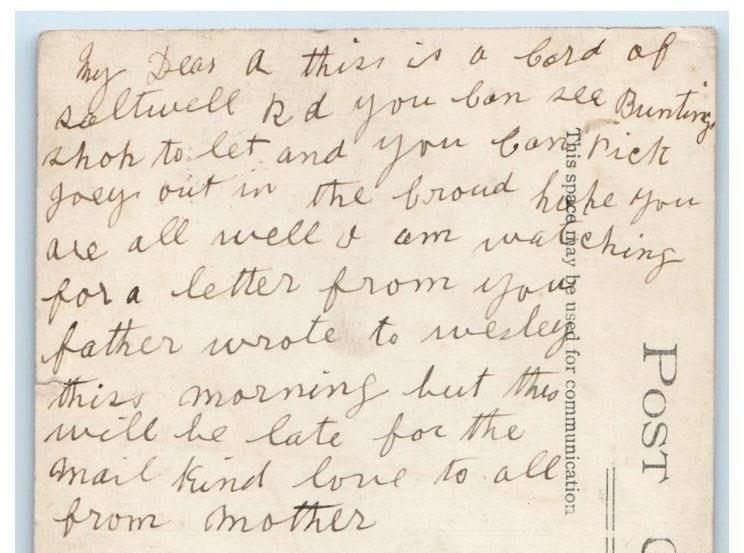 My Dear A this is a Card of
saltwell Rd you Can see Buntings
shop to let and you Can Pick
Joey out in the Croud hope you
are all well I am watching
for a letter from you
father wrote to wesley
this morning but this
will be late for the
mail Kind love to all
from Mother
This space may be used for communication
POST